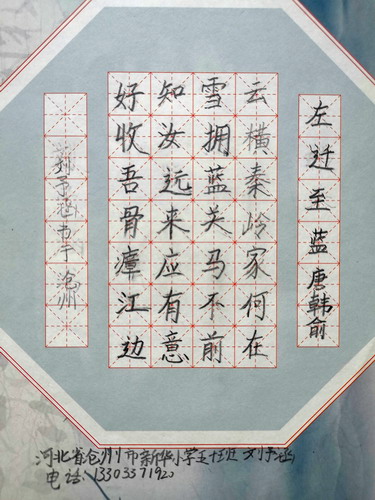 左迁至蓝唐韩俞
云横秦岭家何在
雪拥蓝关马不前
知汝远来应有意
好收吾骨瘴江边
予涵书于沧州
河北省沧州市新华小学 刘予涵
电话:13303371920